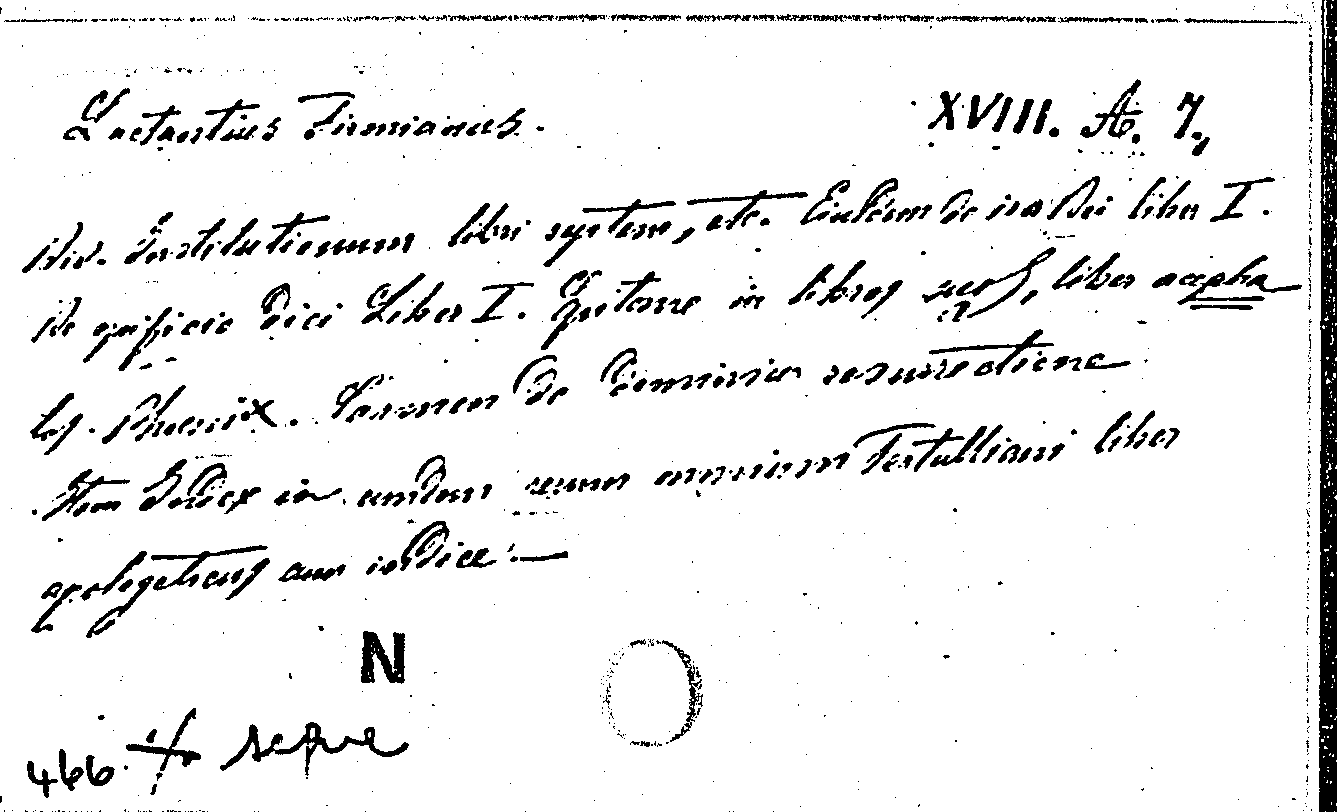 Lactantius Firmianus. XVIII. A. 7.,
Div. Institutionum libri septem, etc. Eiusdem de ira Dei liber I.
De opificio Dei Liber I. Epitome in libros suos, liber acephalos
Phoenix. Carmen de Dominica resurrectione
Item Index in eundem rerum omnium Tertulliani liber
apologeticus cum indice.—
N
466. segue